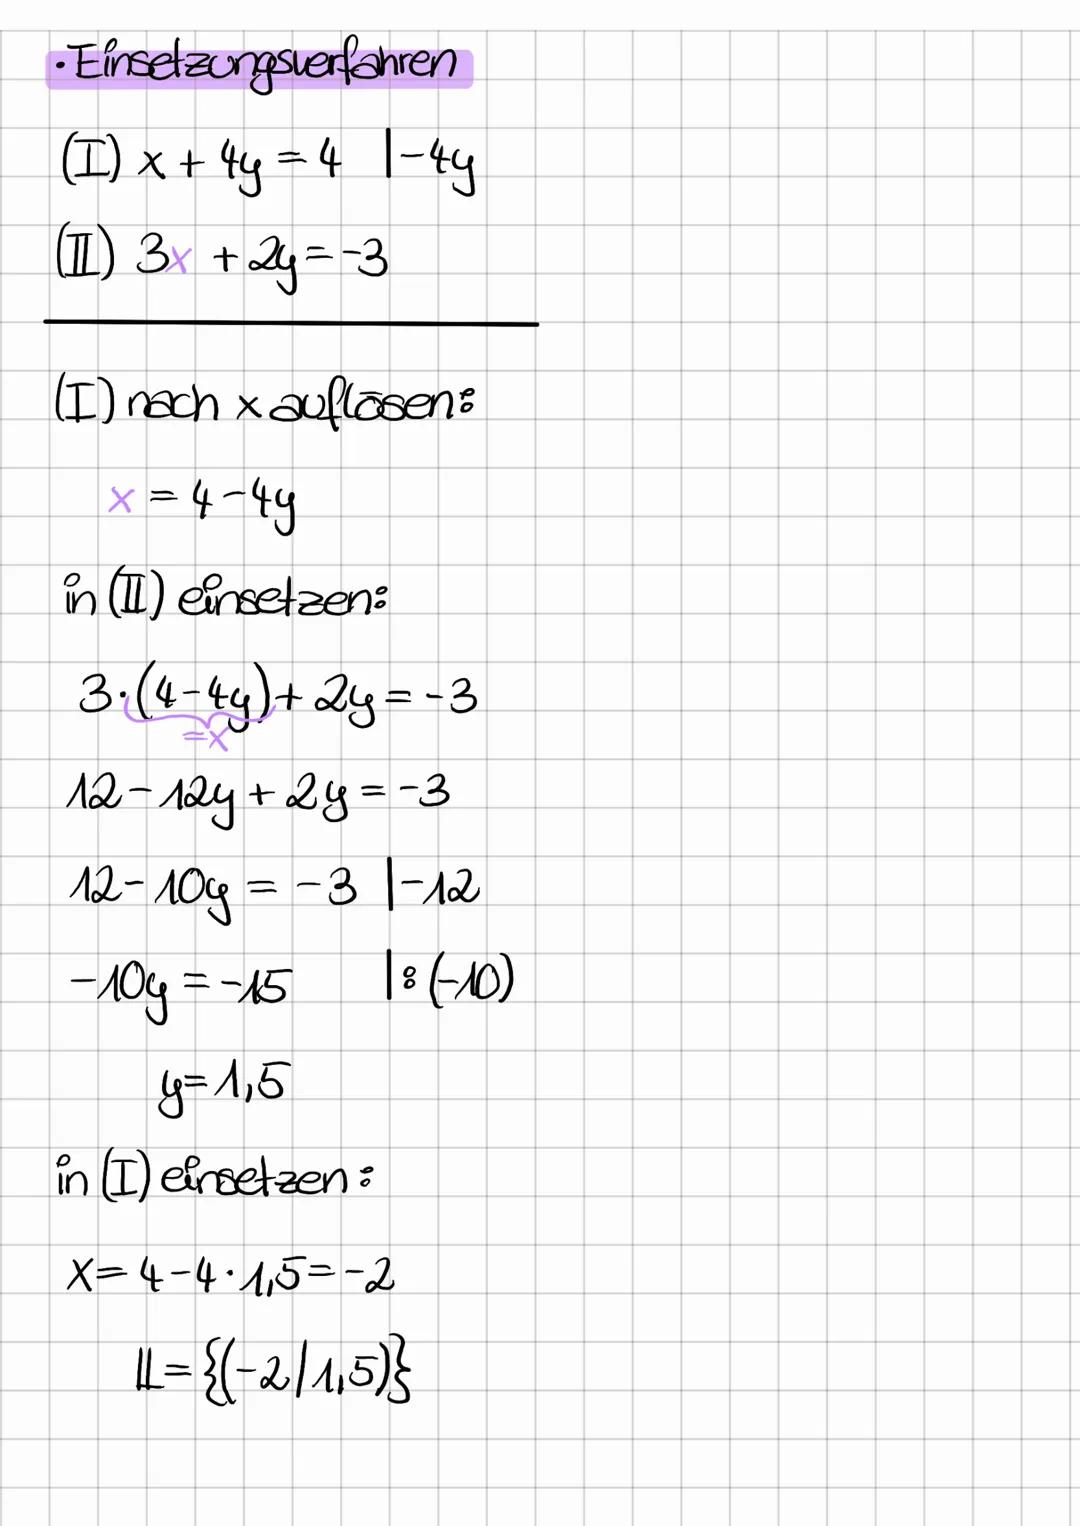 · Einsetzungsverfahren
(I) x + 4y = 4 |-4y
(II) 3x + 2y = -3
(I) nach x auflösen:
x = 4 - 4y
in (II) einsetzen:
3·(4-4y) + 2y = -3
=x
12 - 12y + 2y = -3
12 - 10y = -3 |-12
-10y = -15 |:(-10)
y = 1,5
in (I) einsetzen:
x = 4 - 4 · 1,5 = -2
𝕃 = {(-2/1,5)}